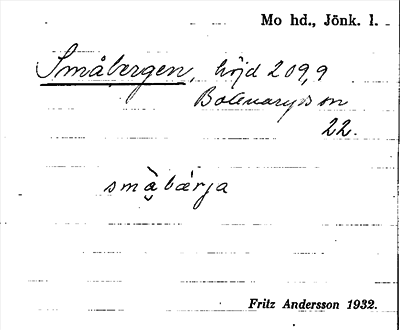 Mo hd., Jönk. l.
Småbergen, höjd 209,9
on
22.
småbärja
Fritz Andersson 1932.